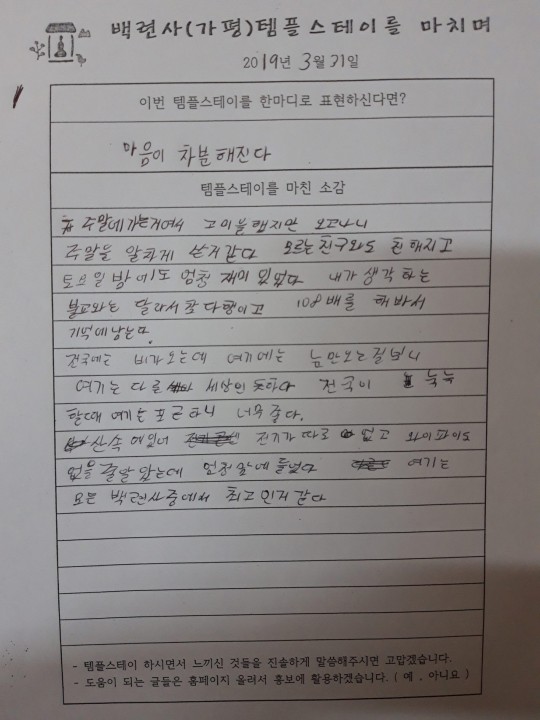 백련사(가평)템플스테이를 마치며
2019년 3월 31일
이번 템플스테이를 한마디로 표현하신다면?
마음이 차분해진다
템플스테이를 마친 소감
주말에 가는거여서 고민을 했지만 오고나니
주말을 알차게 쓴거같다 모르는 친구와도 친해지고
토요일 밤에도 엄청 재미있었다 내가 생각하는
불교와는 달라서 참 다행이고 108배를 해봐서
기억에 남는다.
전국에는 비가오는데 여기에는 눈만오는걸보니
여기는 다른 세상인 듯하다 전국이 눅눅
할때 여기는 포근하니 너무좋다.
산속에있어 전기가 따로 없고 와이파이도
없을줄알았는데 엄청 맘에들었다 여기는
모든 백련사중에서 최고인거같다
- 템플스테이 하시면서 느끼신 것들을 진솔하게 말씀해주시면 고맙겠습니다.
- 도움이 되는 글들은 홈페이지 올려서 홍보에 활용하겠습니다. ( 예 , 아니요 )